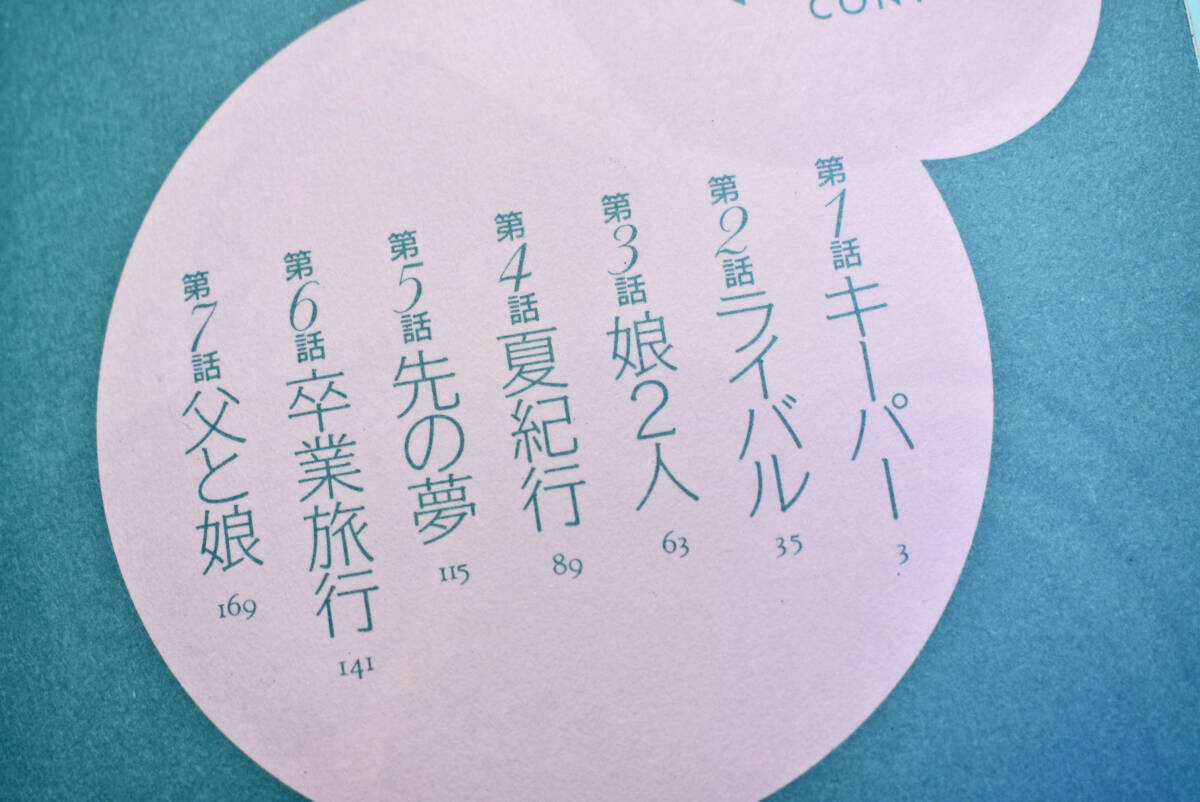 CONT
第1話 キーパー 3
第2話 ライバル 35
第3話 娘2人 63
第4話 夏紀行 89
第5話 先の夢 115
第6話 卒業旅行 141
第7話 父と娘 169